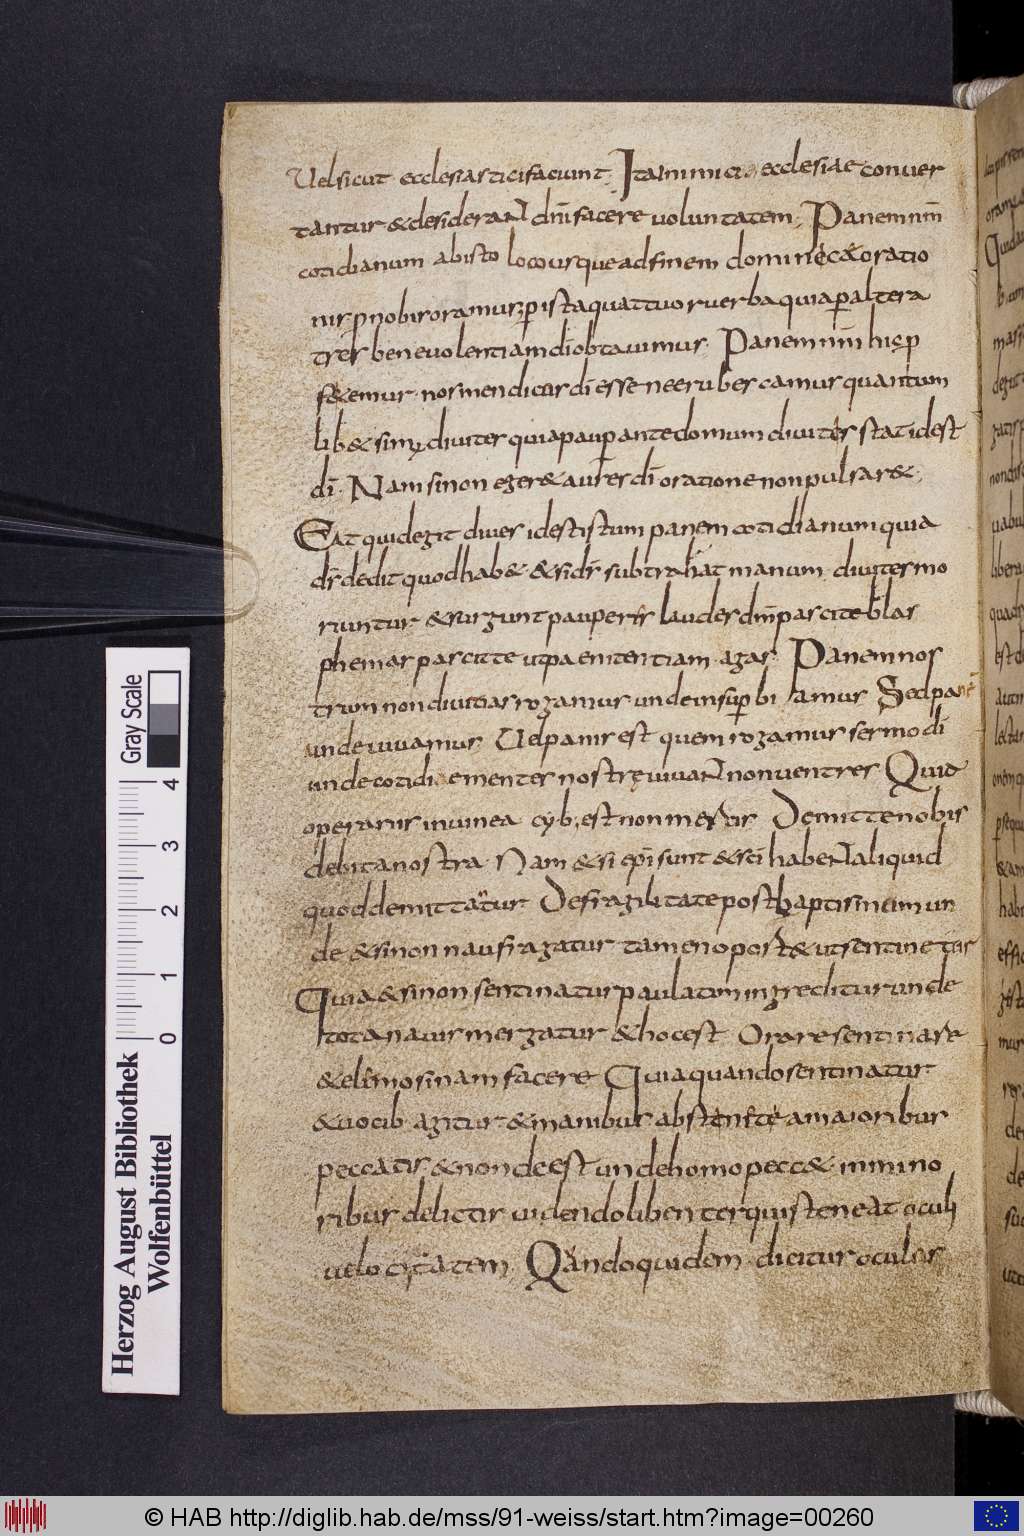 Uel sicut ecclesiastici faciunt. Ita inimici ecclesiae conuer
tantur & desiderant dnī facere uoluntatem. Panem nrm̄
cotidianum ab isto loco usque ad finem dominica oratio
nis p nobis oramus; p ista quattuor uerba quia p altera
tres beneuolentiam dī obtauimus. Panem nrm̄ hic p
f& emur nos mendicus dī esse ne erubescamus quantum
lib& simus diuites quia paup ante domum diuites stat idest
dī. Nam si non eger& aures dī oratione non pulsar&;
Eat qui degit diues idest istum panem cotidianum quia
ds̄ dedit quod hab& & si ds̄ subtrahat manum diuites mo
riuntur & surgunt pauperes laudes dnī parcite blas
phemas parcite ut paenitentiam agas. Panem nos
trum non diuitias rogamus unde insup bi amus Sed pane
unde uiuamus. Uel panis est quem rogamus sermo dī
unde cotidiae mentes nostrę uiuant non uentres Quid
operaris in uinea cyb; est non merces Demitte nobis
debita nostra. Nam & si ep̄i sunt & sc̄i habent aliquid
quod demittatur De fragilitate post baptismum un
de & si non naufragatur tamen oport& ut sentinetur
Quia & si non sentinatur paulatim ingreditur unde
tota nauis mergatur & hoc est Orare sentinare
& elimosinam facere Quia quando sentinatur
& uocib; agitur & manibus abstenete a maioribus
peccatis & non deest unde homo pecc& in mino
ribus delictis uidendo libenter quis teneat oculi
uelocitatem. Quando quidem dicitur oculos
Herzog August Bibliothek
Wolfenbüttel
Gray Scale
0 1 2 3 4
© HAB http://diglib.hab.de/mss/91-weiss/start.htm?image=00260